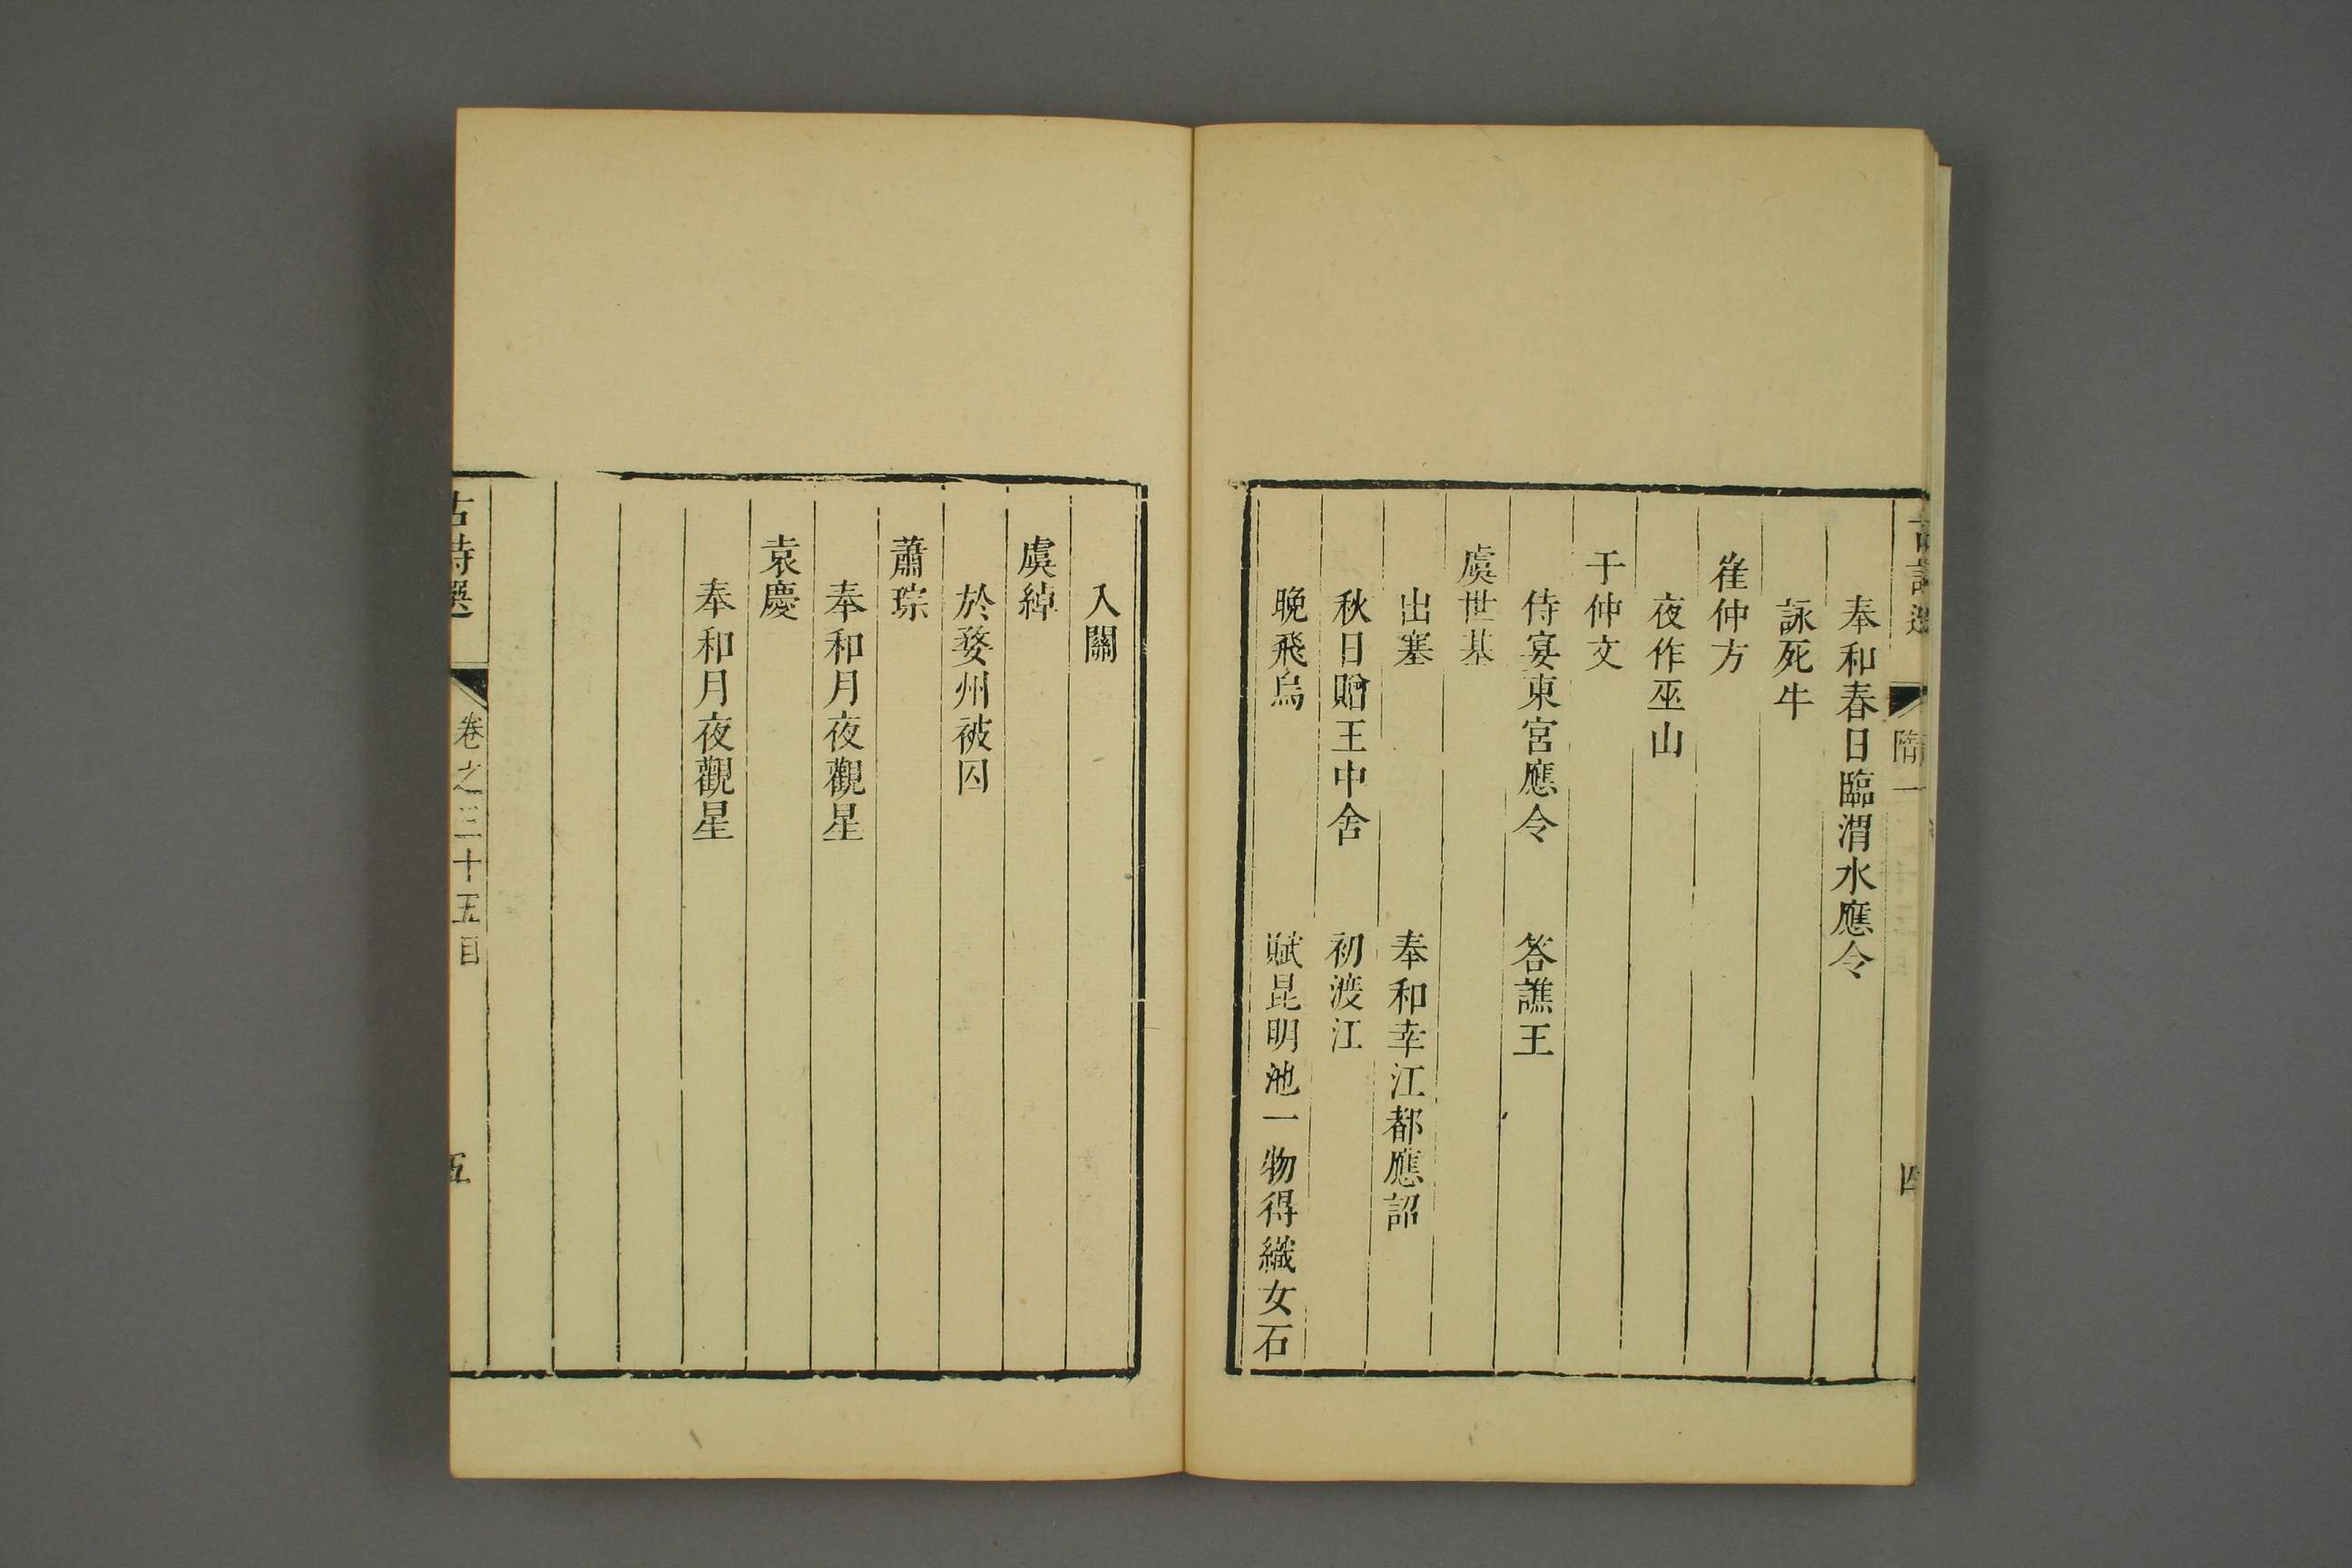 古詩選
隋一
四
奉和春日臨渭水應令
詠死牛
崔仲方
夜作巫山
于仲文
侍宴東宮應令 答譙王
虞世基
出塞 奉和幸江都應詔
秋日贈王中舍 初渡江
晚飛烏 賦昆明池一物得織女石
入關
虞綽
於婺州被囚
蕭琮
奉和月夜觀星
袁慶
奉和月夜觀星
古詩選
卷之三十五目
五